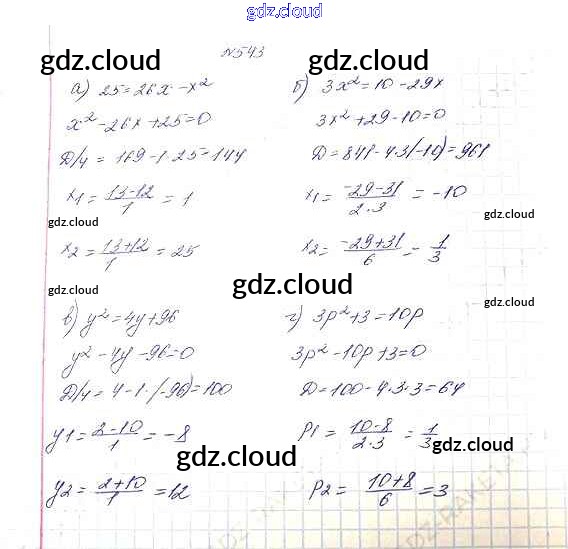 gdz.cloud
№543
gdz.cloud gdz.cloud
а) 25=26x-x²
x²-26x+25=0
gdz.cloud
Д/4=169-1·25=144
x1=(13-12)/1=1
gdz.cloud
x2=(13+12)/1=25
б) 3x²=10-29x
3x²+29-10=0
gdz.cloud
Д=841-4·3(-10)=961
x1=(-29-31)/(2·3)=-10
gdz.cloud
x2=(-29+31)/6=1/3
gdz.cloud
gdz.cloud
в) y²=4y+96
y²-4y-96=0
gdz.cloud
Д/4=4-1·(-96)=100
y1=(2-10)/1=-8
gdz.cloud
y2=(2+10)/1=12
г) 3p²+3=10p
3p²-10p+3=0
gdz.cloud
Д=100-4·3·3=64
p1=(10-8)/(2·3)=1/3
gdz.cloud
p2=(10+8)/6=3